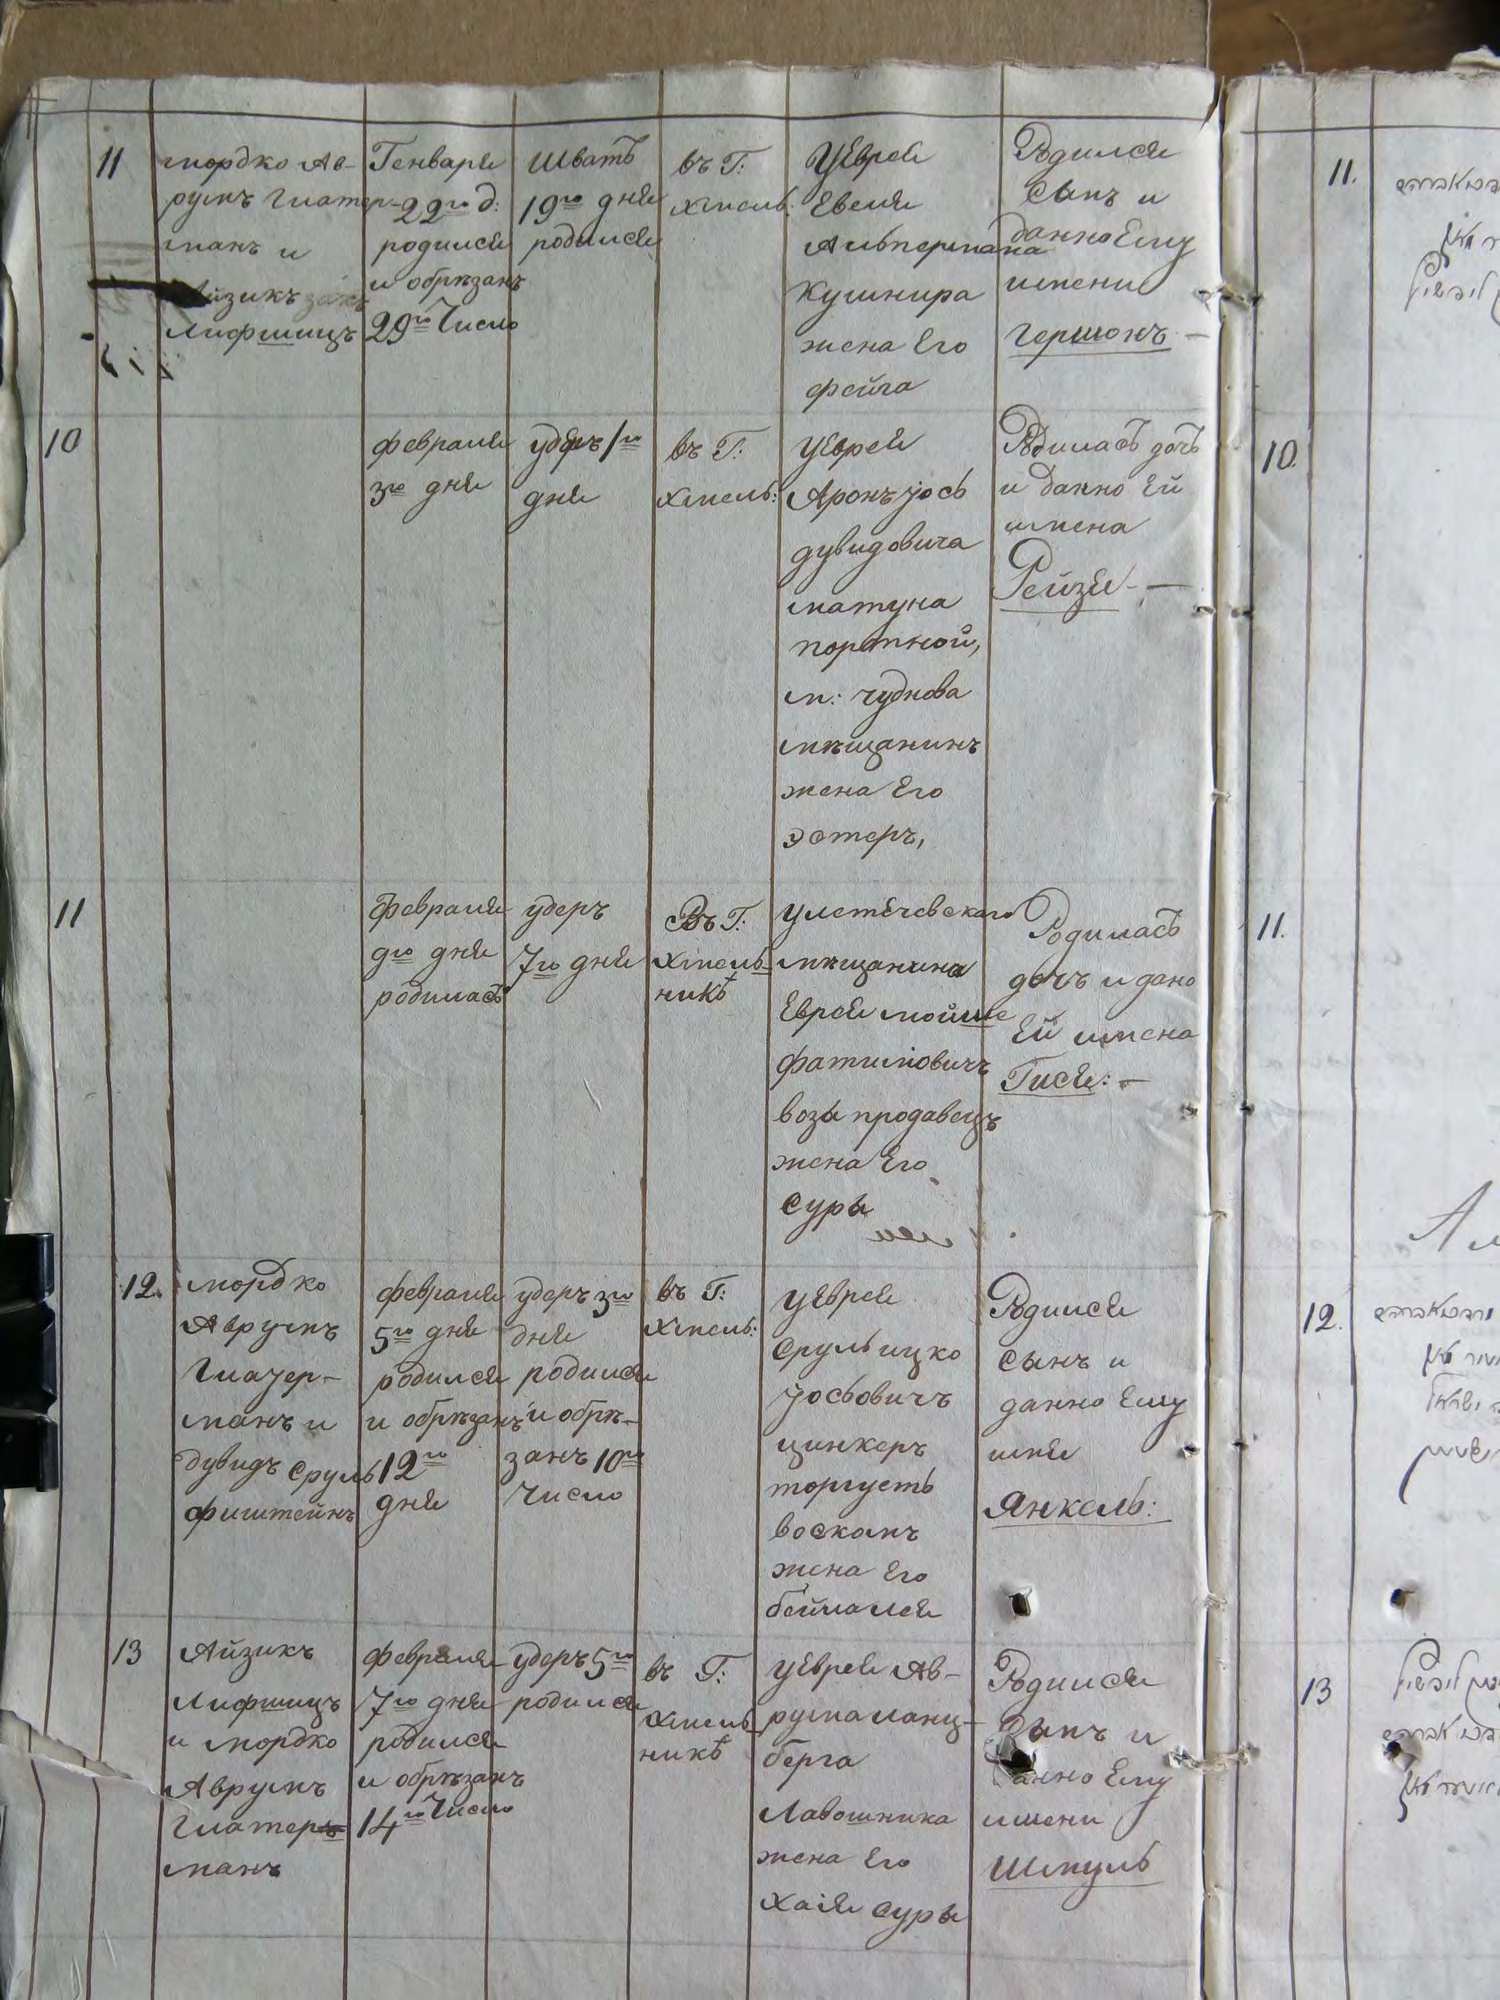 11
мордко Ав-
румъ Глатер-
манъ и
Айзикъ
Лифшицъ
Генваря
22го д:
родился
и обрѣзанъ
29го Число
Шватъ
19го дня
родился
въ Г:
Хмель:
У Еврея
Евеля
Альпермана
Кушнира
жена Его
фейга
Родился
сынъ и
данно Ему
имени
Гершонъ —
10
февраля
3го дня
удеръ 1го
дня
въ Г:
Хмель:
У Еврей
Аронъ Іось
дувидовича
матуна
портной,
м: чуднова
мѣщанинъ
жена Его
Эстеръ,
Родилась дочь
и данно Ей
имена
Рейзя —
11
февраля
9го дня
родилась
удеръ
7го дня
Въ Г:
Хмель-
никѣ
У летечевскаго
мѣщанина
Еврея мойше
фатимовичъ
возы продавецъ
жена Его
суры
Родилась
дочь и дано
Ей имена
Гися: —
12.
мордко
Аврумъ
Глатер-
манъ и
дувидъ сруль
фиштейнъ
февраля
5го дня
родился
и обрѣзанъ
12го
дня
удеръ 3го
дня
родился
и обрѣ-
занъ 10го
Число
въ Г:
Хмель:
У Еврея
сруль ицко
Іосьовичъ
цинкеръ
торгуеть
воскомъ
жена Его
бейла лея
Родился
сынъ и
данно Ему
имя
Янкель:
13
Айзикъ
Лифшицъ
и мордко
Аврумъ
Глатер
манъ
февраля
7го дня
родился
и обрѣзанъ
14го Число
удеръ 5го
родился
въ Г:
Хмель-
никѣ
У Еврея Ав-
рума ланц-
берга
Лавошника
жена Его
хаія суры
Родился
сынъ и
данно Ему
имени
Шмуль
11.
10.
11.
12.
13